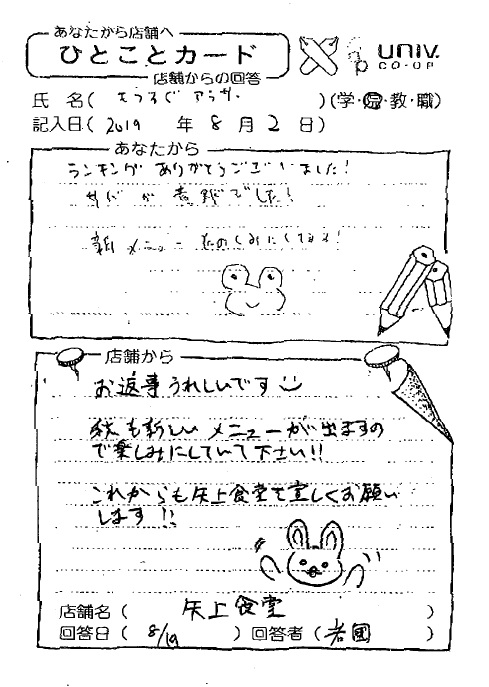 あなたから店舗へ
ひとことカード
店舗からの回答
UNIV.
CO-OP
氏 名( もうるぐ アラサー )(学・院・教・職)
記入日( 2019 年 8 月 2 日)
あなたから
ランキング ありがとうございました!
が でした!
新メニュー たのしみにしてます!
店舗から
お返事うれしいです
秋も新しいメニューが出ますの
で楽しみにしていて下さい!!
これからも矢上食堂を宜しくお願い
します!!
店舗名( 矢上食堂 )
回答日( 8/19 ) 回答者( 岩國 )